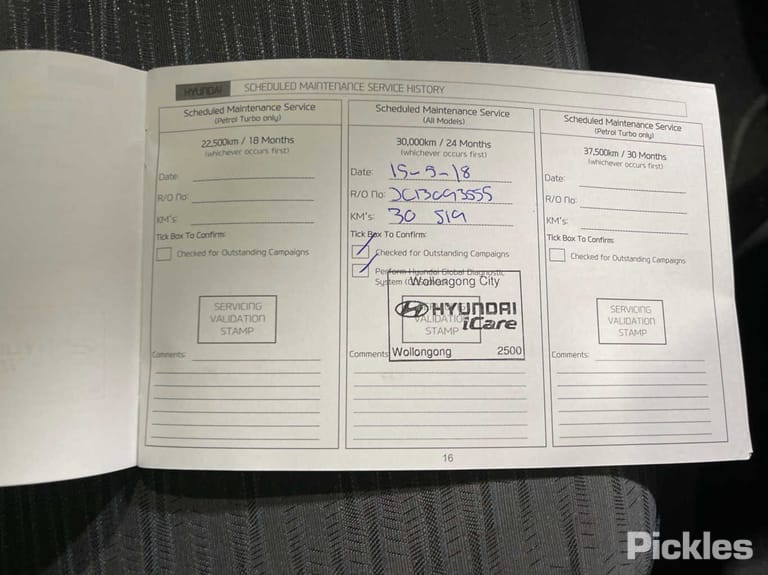 HYUNDAI SCHEDULED MAINTENANCE SERVICE HISTORY
Scheduled Maintenance Service
(Petrol Turbo only)
22,500km / 18 Months
(whichever occurs first)
Date:
R/O No:
KM's:
Tick Box To Confirm:
Checked for Outstanding Campaigns
SERVICING
VALIDATION
STAMP
Comments:
Scheduled Maintenance Service
(All Models)
30,000km / 24 Months
(whichever occurs first)
Date: 15-9-18
R/O No:
KM's: 30 519
Tick Box To Confirm:
Checked for Outstanding Campaigns
Perform Hyundai Global Diagnostic
System
Wollongong City
HYUNDAI
iCare
VALIDATION
STAMP
Comments: Wollongong 2500
Scheduled Maintenance Service
(Petrol Turbo only)
37,500km / 30 Months
(whichever occurs first)
Date:
R/O No:
KM's:
Tick Box To Confirm:
Checked for Outstanding Campaigns
SERVICING
VALIDATION
STAMP
Comments:
16
Pickles